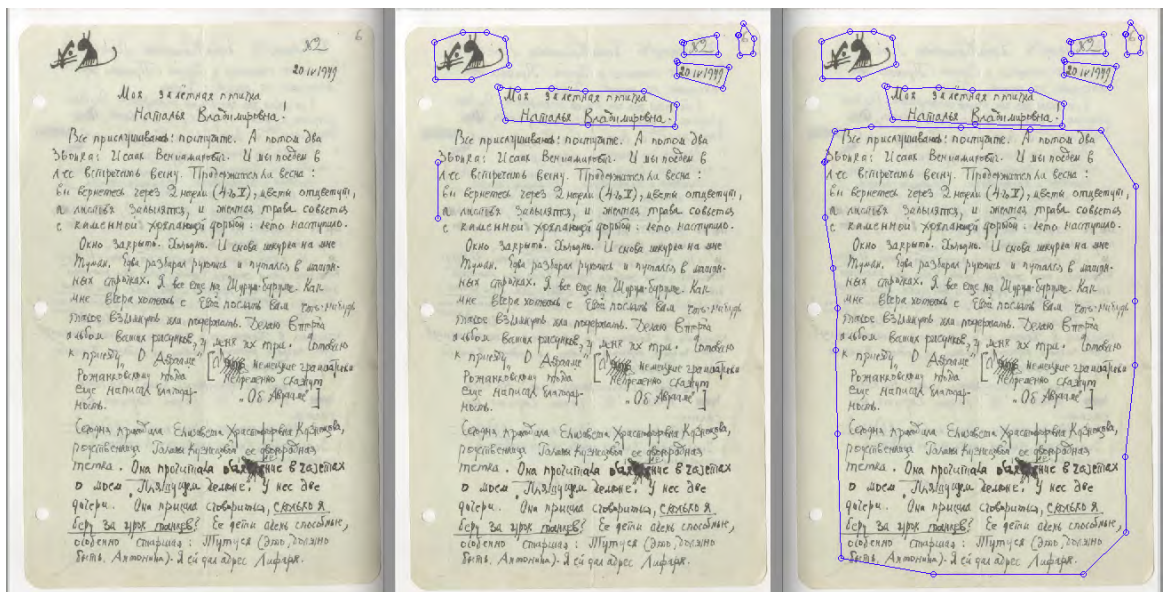 6
№2
20 IV 1949
Моя залётная птичка
Наталья Владимировна!
Все прислушиваюсь: постучите. А потом два
звонка: Исаак Вениаминович. И мы поедем в
лес встречать весну. Продержится ли весна:
вы вернетесь через 2 недели (4го V), цветы отцветут,
и листья запылятся, и желтая трава совьется
с каменной хохлающей дорогой: лето наступило.
Окно закрыто. Холодно. И снова шкурка на мне
Едва разбирал рукопись и путался в машин-
ных строчках. Я все еще на Шурум-буруме. Как
мне вчера хотелось с Евой послать вам что-нибудь
такое взглянуть или подержать. Делаю
альбом ваших рисунков, у меня их три. Готовлю
к приезду. О Аврааме" [ немецкие грамматики
Рожанковскому непременно скажут
еще написал благодар- „Об Аврааме"]
ность.
Сегодня приходила Елизавета Христофоровна Кузнецова,
родственница Галины Кузнецовой ее двоюродная
тетка. Она прочитала объявление в газетах
о моем „Пляшущем демоне". У нее две
дочери. Она пришла сговориться, сколько я
беру за урок танцев? Ее дети очень способные,
особенно старшая: Тутуся (это, должно
быть, Антонина). Я ей дал адрес Лифаря.